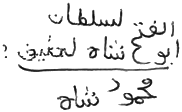 لسلطان
الفتح
ابو شاه لحقيق ?
محمود شاه